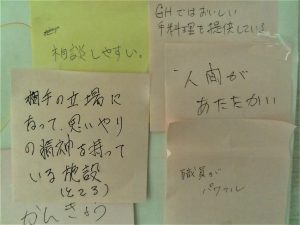 相談しやすい。
GHではおいしい
手料理を提供している
相手の立場に
なって、思いやり
の精神を持って
いる施設
(ところ)
人間が
あたたかい
職員が
パワフル
かんきょう